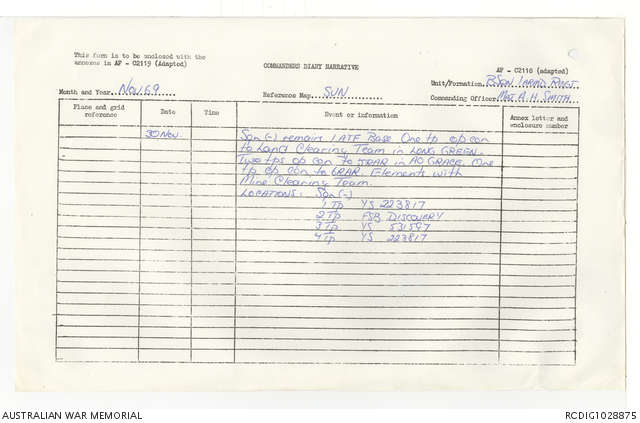 This form is to be enclosed with the
annexes in AF - C2119 (Adapted)
COMMANDERS DIARY NARRATIVE
AF - C2118 (adapted)
Unit/Formation B Sqn 1 Armd Regt
Month and Year Nov 69
Reference Map SUN
Commanding Officer Maj A. H. SMITH
Place and grid reference
Date
Time
Event or information
Annex letter and enclosure number
30 Nov.
Sqn (-) remain 1 ATF Base. One tp op con
to Land Clearing Team in LONG GREEN.
Two tps op con to 5RAR in AO GRACE. One
tp op con to 6RAR. Elements with
Mine Clearing Team.
LOCATIONS: Sqn (-)
1 Tp YS 223817
2 Tp FSB DISCOVERY
3 Tp YS 531597
4 Tp YS 223817
AUSTRALIAN WAR MEMORIAL
RCDIG1028875